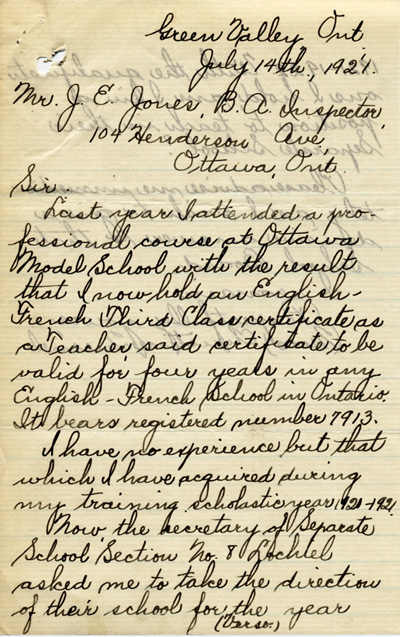 Green Valley Ont
July 14th., 1921.
Mr. J. E. Jones, B.A. Inspector,
104 Henderson Ave,
Ottawa, Ont.
Sir.
Last year I attended a pro-
fessional course at Ottawa
Model School with the result
that I now hold an English-
French Third Class certificate as
a Teacher said certificate to be
valid for four years in any
English-French School in Ontario.
It bears registered number 7913.
I have no experience but that
which I have acquired during
my training scholastic year 1920-1921
Now, the secretary of Separate
School Section No. 8 Lochiel
asked me to take the direction
of their school for the year
(Verso.)